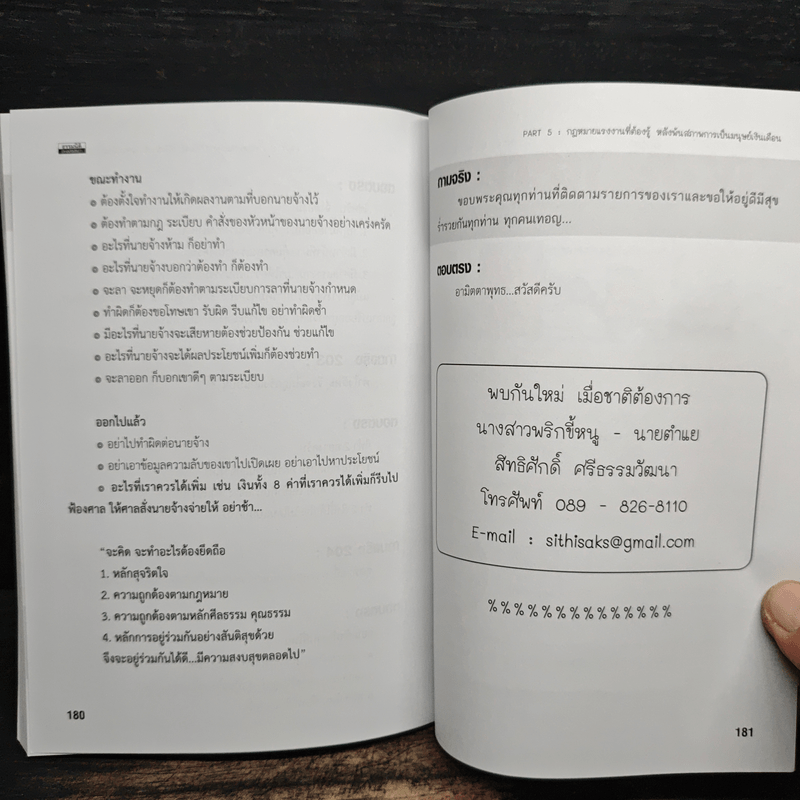 ขณะทำงาน
๏ ต้องตั้งใจทำงานให้เกิดผลงานตามที่บอกนายจ้างไว้
๏ ต้องทำตามกฎ ระเบียบ คำสั่งของหัวหน้าของนายจ้างอย่างเคร่งครัด
๏ อะไรที่นายจ้างห้าม ก็อย่าทำ
๏ อะไรที่นายจ้างบอกว่าต้องทำ ก็ต้องทำ
๏ จะลา จะหยุดก็ต้องทำตามระเบียบการลาที่นายจ้างกำหนด
๏ ทำผิดก็ต้องขอโทษเขา รับผิด รีบแก้ไข อย่าทำผิดซ้ำ
๏ มีอะไรที่นายจ้างจะเสียหายต้องช่วยป้องกัน ช่วยแก้ไข
๏ อะไรที่นายจ้างจะได้ผลประโยชน์เพิ่มก็ต้องช่วยทำ
๏ จะลาออก ก็บอกเขาดีๆ ตามระเบียบ
ออกไปแล้ว
๏ อย่าไปทำผิดต่อนายจ้าง
๏ อย่าเอาข้อมูลความลับของเขาไปเปิดเผย อย่าเอาไปหาประโยชน์
๏ อะไรที่เราควรได้เพิ่ม เช่น เงินทั้ง 8 ค่าที่เราควรได้เพิ่มก็รีบไป
ฟ้องศาล ให้ศาลสั่งนายจ้างจ่ายให้ อย่าช้า...
"จะคิด จะทำอะไรต้องยึดถือ
1. หลักสุจริตใจ
2. ความถูกต้องตามกฎหมาย
3. ความถูกต้องตามหลักศีลธรรม คุณธรรม
4. หลักการอยู่ร่วมกันอย่างสันติสุขด้วย
จึงจะอยู่ร่วมกันได้ดี...มีความสงบสุขตลอดไป"
180
PART 5 : กฎหมายแรงงานที่ต้องรู้ หลังพ้นสภาพการเป็นมนุษย์เงินเดือน
ถามจริง :
ขอบพระคุณทุกท่านที่ติดตามรายการของเราและขอให้อยู่ดีมีสุข
ร่ำรวยกันทุกท่าน ทุกคนเทอญ...
ตอบตรง :
อามิตตาพุทธ...สวัสดีครับ
พบกันใหม่ เมื่อชาติต้องการ
นางสาวพริกขี้หนู - นายตำแย
สิทธิศักดิ์ ศรีธรรมวัฒนา
โทรศัพท์ 089 - 826-8110
E-mail : sithisaks@gmail.com
%%%%%%%%%%%%%%
181